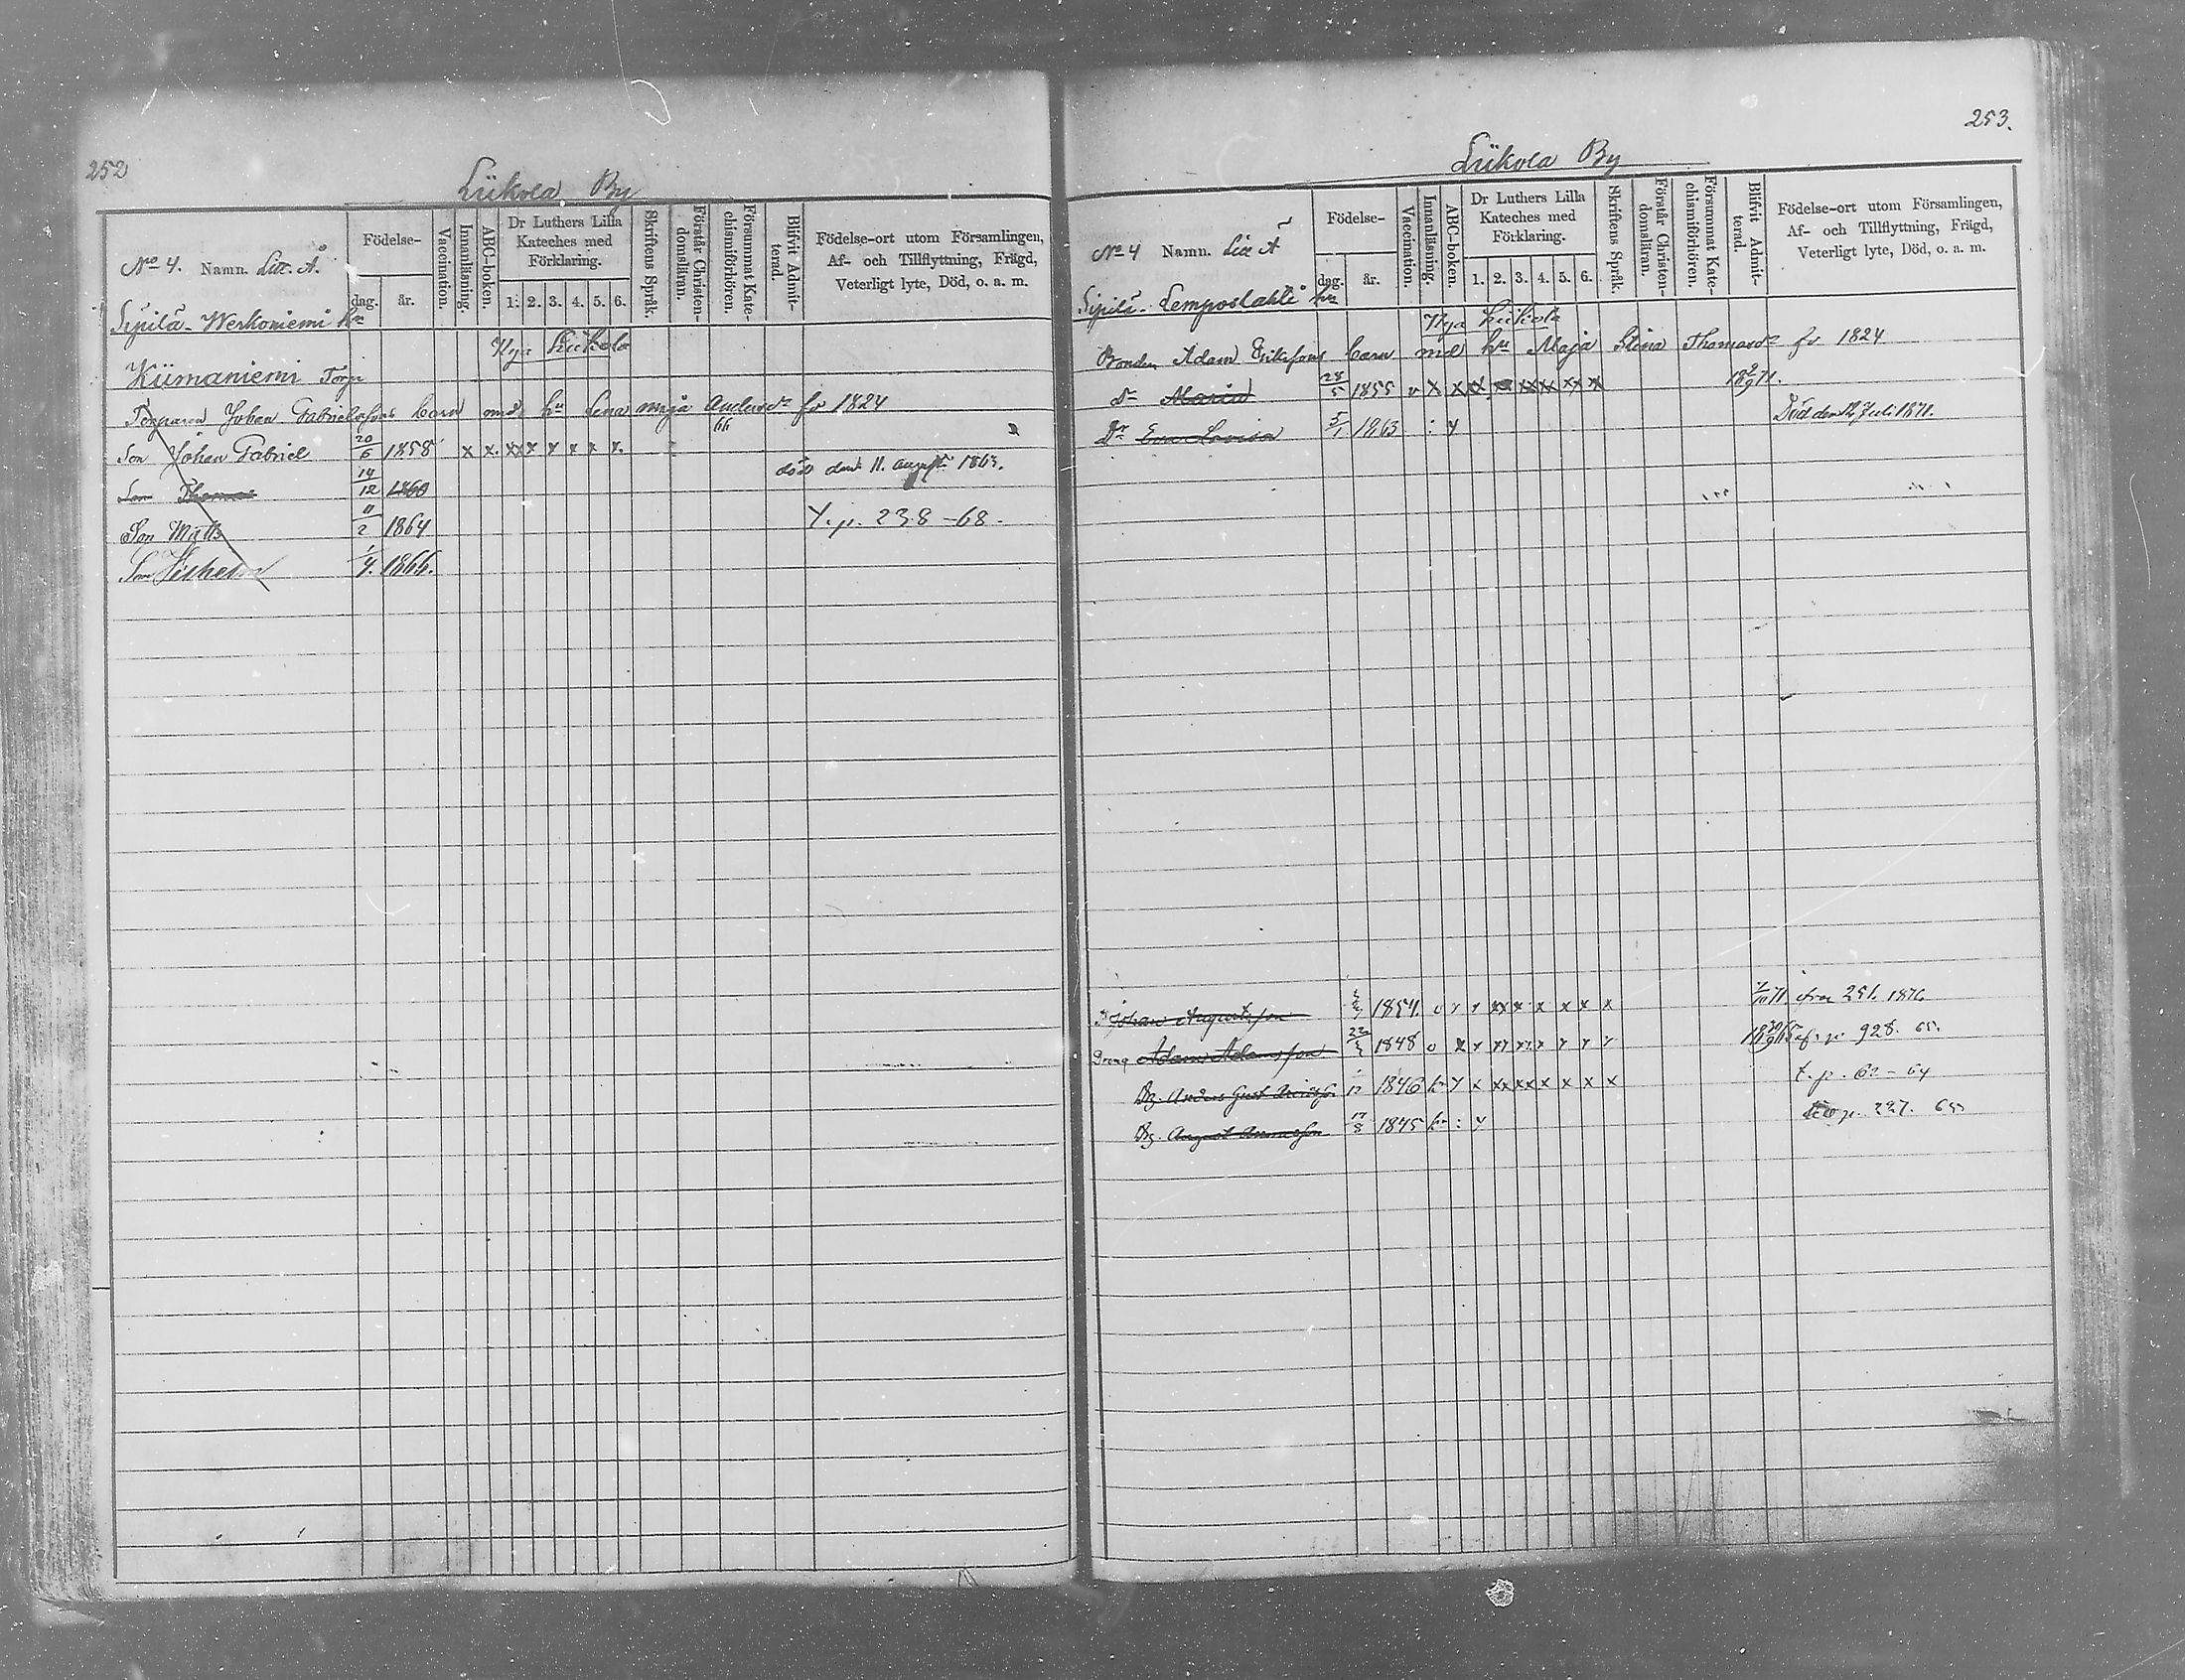 252
Liikola By
No 4. Namn. Litt. A.
Födelse-
dag. år.
Vaccination.
Innanläsning.
ABC-boken.
Dr Luthers Lilla Kateches med Förklaring.
1. 2. 3. 4. 5. 6.
Skriftens Språk.
Förstår Christendomsläran.
Försummat Katechismiförhören.
Blifvit Admitterad.
Födelse-ort utom Församlingen,
Af- och Tillflyttning, Frägd,
Veterligt lyte, Död, o. a. m.
Sipilä - Werkoniemi hn
Nya Liikola
Kiimaniemi Torp
Torparen Johan Gabrielssons barn med hu Lena Maja Andersdr för 1824
66
Son Johan Gabriel 20/6 1858 x x. x x x x x x x.
Son Thomas 14/12 1860 död den 11. augusti 1863.
Son Matts 11/2 1864 T. p. 238 - 68.
Son Wilhelm 1/4. 1866.
253.
Liikola By
No 4 Namn. Litt A
Födelse-
dag. år.
Vaccination.
Innanläsning.
ABC-boken.
Dr Luthers Lilla Kateches med Förklaring.
1. 2. 3. 4. 5. 6.
Skriftens Språk.
Förstår Christendomsläran.
Försummat Katechismiförhören.
Blifvit Admitterad.
Födelse-ort utom Församlingen,
Af- och Tillflyttning, Frägd,
Veterligt lyte, Död, o. a. m.
Sipilä - Lemposlahti hn
Nya Liikola
Bonden Adam Erikssons barn med hu Maja Stina Thomasdr för 1824
Dr Maria 28/5 1855 v x x x x x x x x x 18 2/9 71.
Dr Eva Lovisa 5/1 1863 : y Död den 12 Juli 1871.
Johan Augustsson 1854. v x x x x x x x x x 71 från 251. 1870
Dreng Adam Adamsson 1848 v x x x x x x x x p. 928. 65.
Dg. Anders Gust 1846 y x x x x x x x x x t. p. 62 - 64
Dg. August 17/8 1845 : y p. 227.